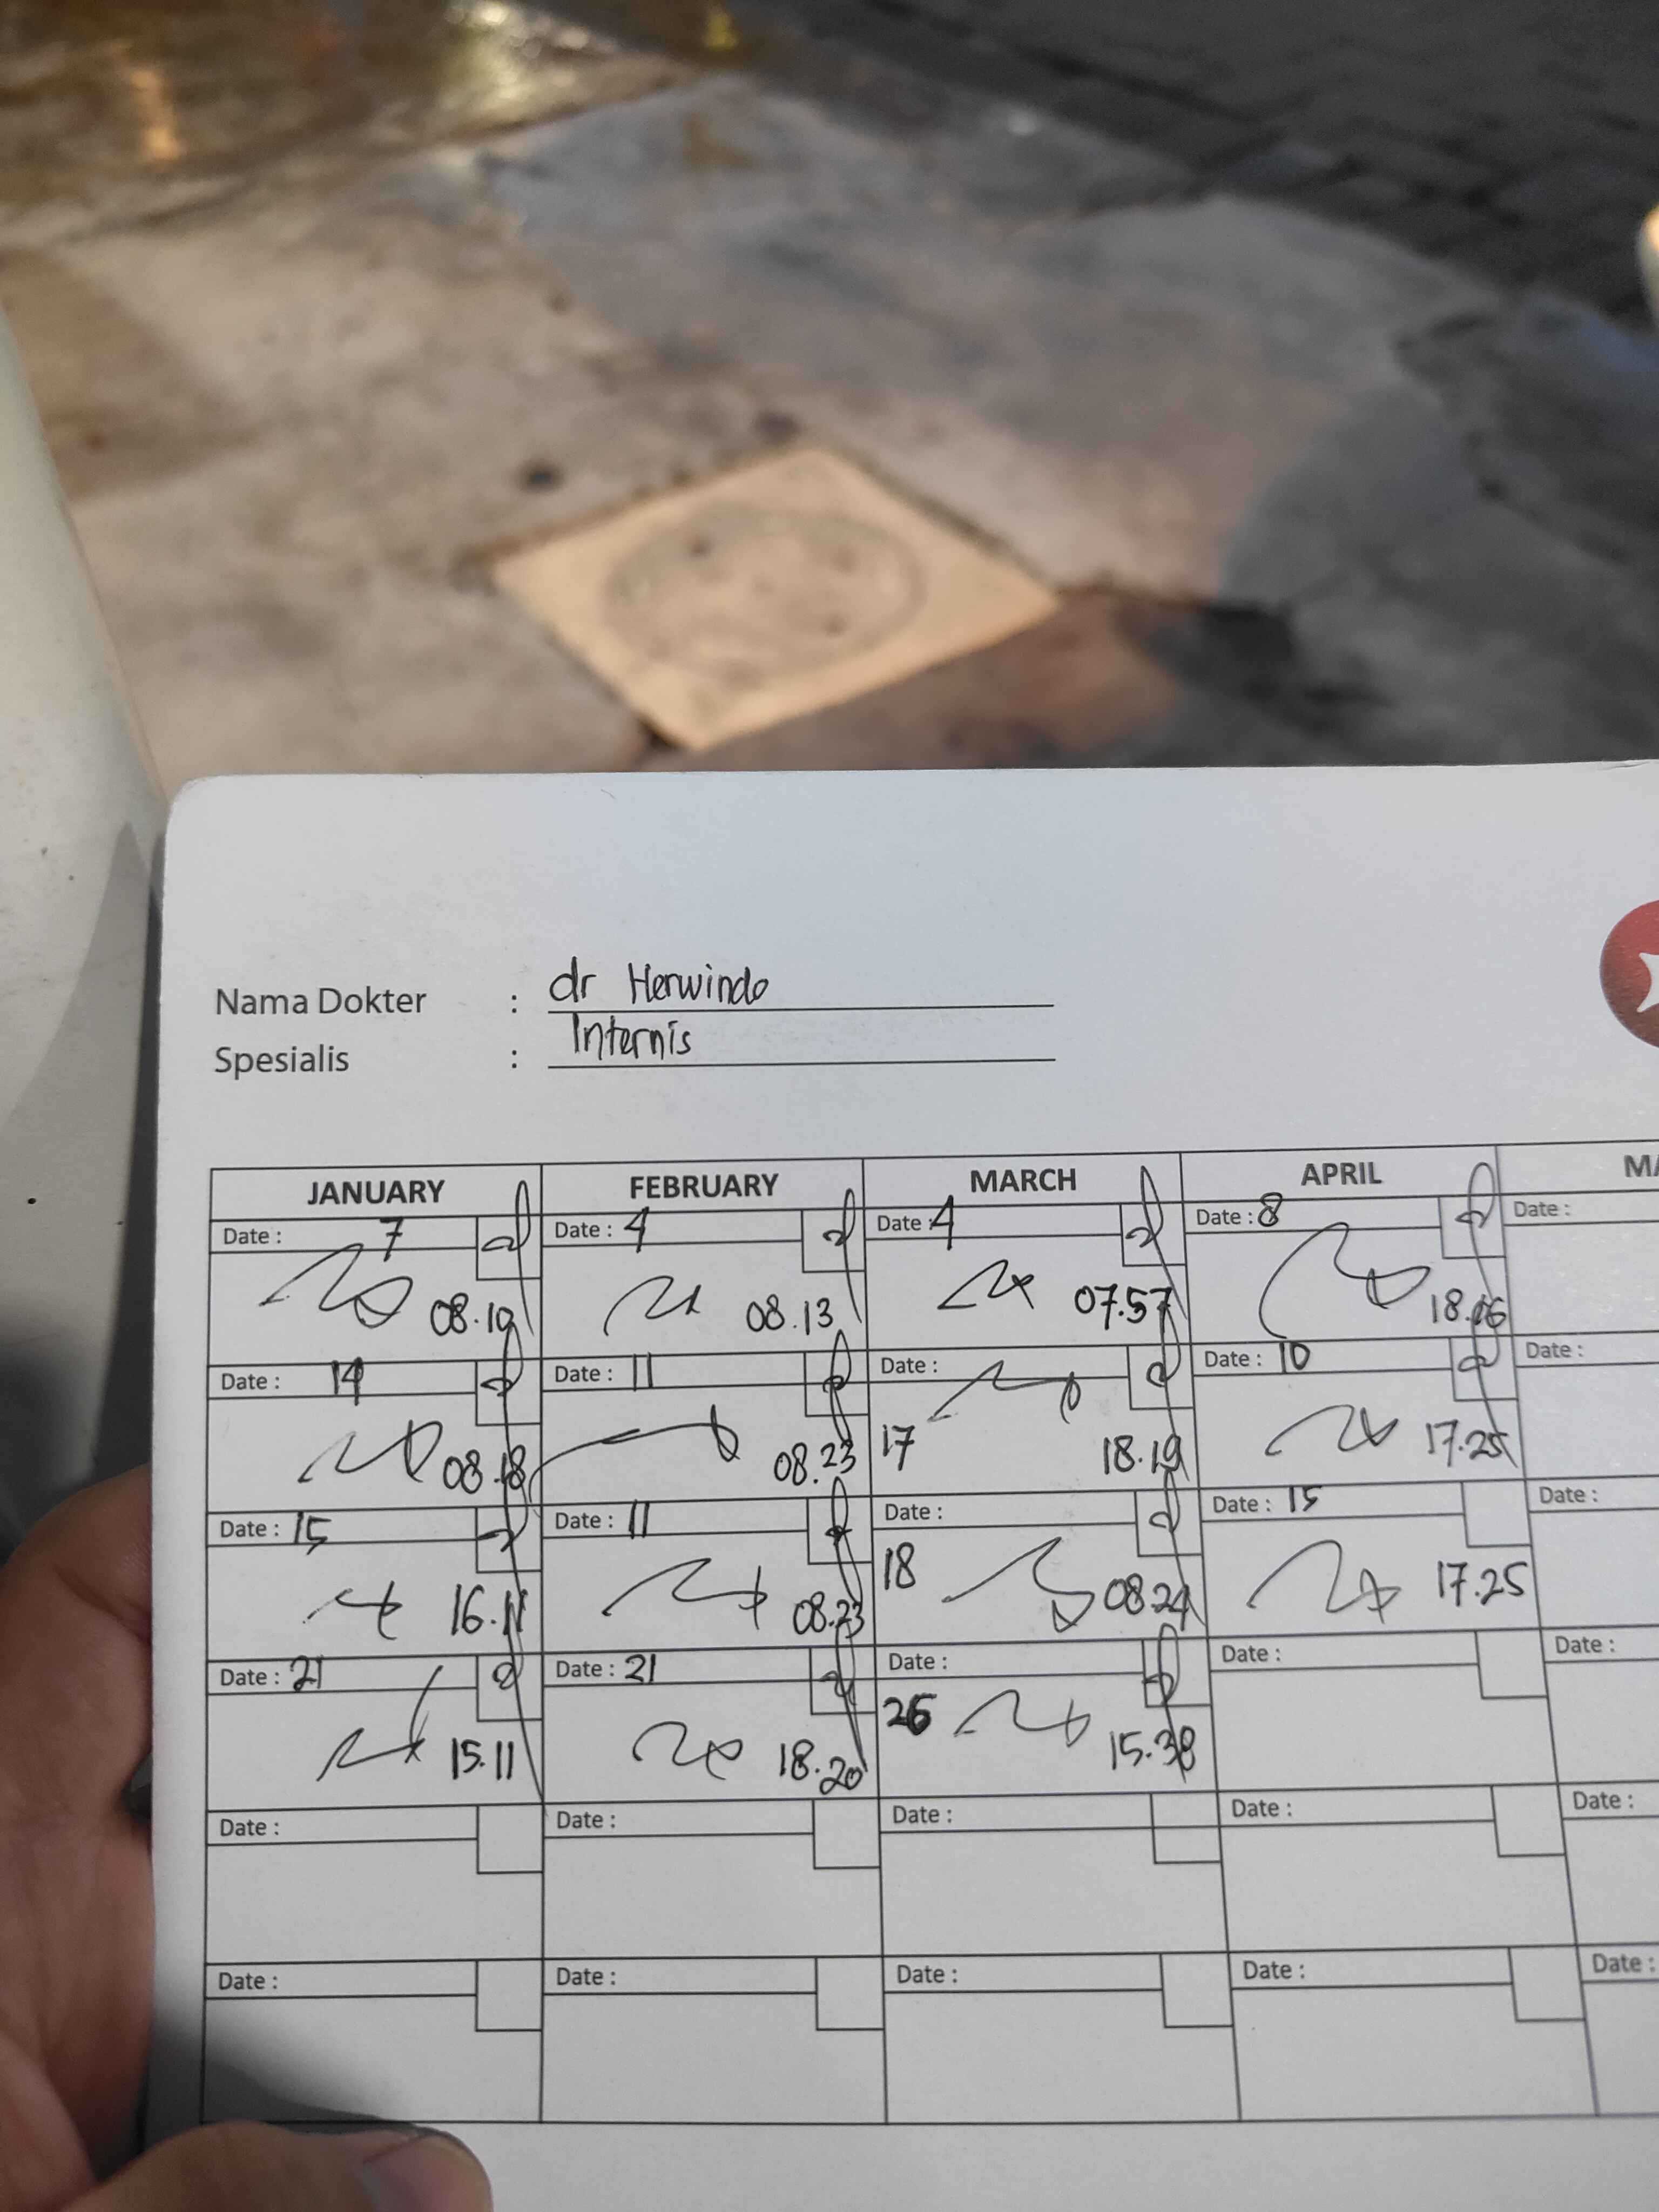 Nama Dokter : dr Herwindo
Spesialis : Internis
JANUARY FEBRUARY MARCH APRIL
Date : 7 Date : 4 Date : 4 Date : 8 Date :
08.19 08.13 07.57 18.06
Date : 14 Date : 11 Date : Date : 10 Date :
08.18 08.23 17 18.19 17.25
Date : 15 Date : 11 Date : Date : 15 Date :
16.11 08.23 18 08.24 17.25
Date : 21 Date : 21 Date : Date : Date :
15.11 18.20 26 15.38
Date : Date : Date : Date : Date :
Date : Date : Date : Date : Date :